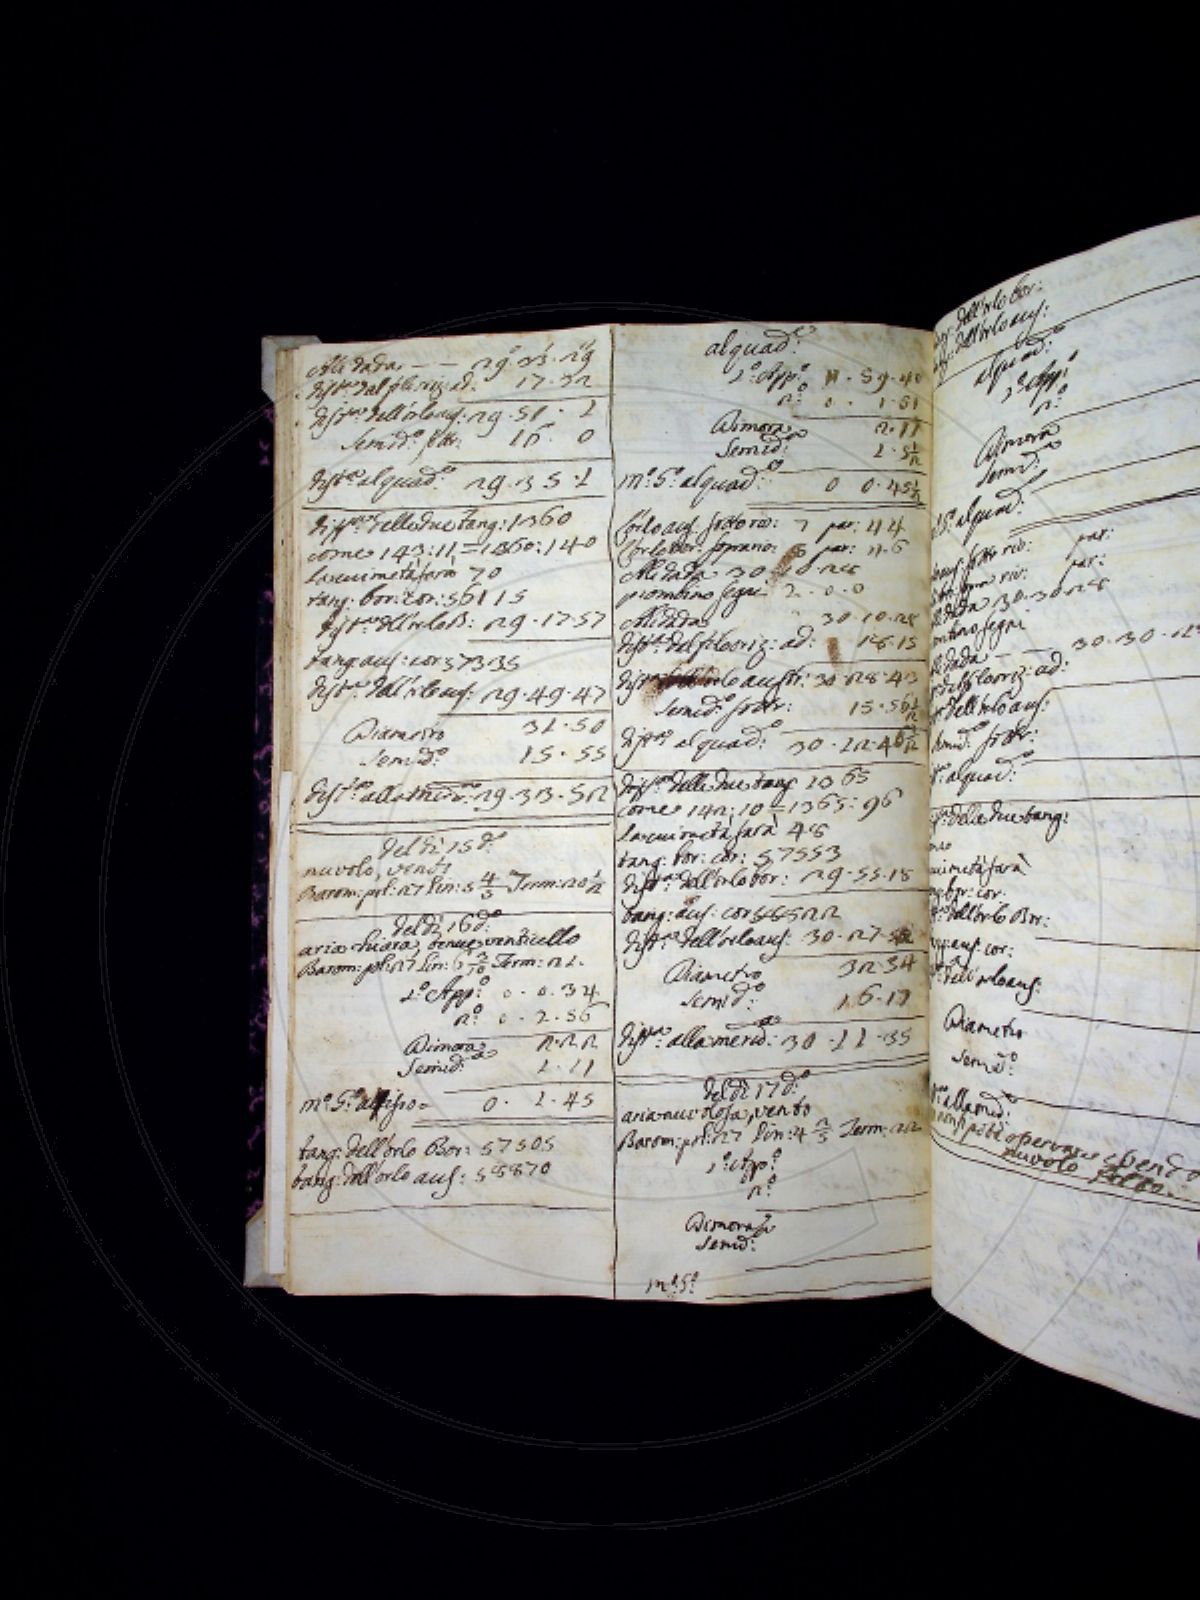 Alidada — — 29° 33' 29"
dist.ª dal filo riz. ad. 17 · 32
dist.ª dell'orlo aus: 29 · 51 · 1
Semid.º sottr: 16 · 0
dist.ª al quad.º 29 · 35 · 1
diff.ª delle due tang: 1360
come 143: 11 = 1360: 140
la cui metà sarà 70
tang. bor: cor: 56115
dist.ª dell'orlo B: 29 · 17 · 57
tang aus: cor 57335
dist.ª dall'orlo aus: 29 · 49 · 47
Diametro 31 · 50
Semid.º 15 · 55
dist.ª alla merid.ª: 29 · 33 · 52
del dì 15 d.º
nuvolo, vento
Barom: pol: 27 lin: 5 4/5 Term: 20 1/2
del dì 16 d.º
aria chiara, tenue venticello
Barom: pol: 27 lin: 6 3/10 Term: 21.
1.º App.º 0 · 0 · 34
2.º 0 · 2 · 56
Dimora 2 · 22
Semid.ª 1 · 11
m.º G.º al fisso = 0 · 1 · 45
tang: dell'orlo Bor: 57505
tang: dell'orlo aus: 58870
al quad.º
1.º App.º 11 · 59 · 40
2.º 0 · 1 · 51
Dimora 2 · 11
Semid.ª 1 · 5 1/2
m.º G.º al quad.º 0 0 · 45 1/2
l'orlo aus. sotto rio: 7 par: 44
l'orlo bor: soprario: 6 par: 46
Alidada 30 · 10 · 28
piombino segni 2 · 0 · 0
Alidada 30 · 10 · 28
dist.ª dal filo oriz: ad: 18 · 15
dist.ª dell'orlo austr: 30 · 28 · 43
Semid.º sottr: 15 · 56 1/2
dist.ª al quad.º: 30 · 12 · 46 1/2
diff.ª delle due tang 1365
come 142: 10 = 1365: 96
la cui metà sarà 48
tang: bor: cor: 57553
dist.ª dall'orlo bor: 29 · 55 · 18
tang: aus: cor 58822
dist.ª dell'orlo aus: 30 · 27 · 52
Diametro 32 · 34
Semid.º 16 · 17
dist.ª alla merid: 30 · 11 · 35
del dì 17 d.º
aria nuvolosa, vento
Barom: pol: 27 lin: 4 2/5 Term: 22
1.º App.º
2.º
Dimora
Semid:
m.º G.º
dell'orlo bor:
dell'orlo aus:
al quad:
1.º App.º
2.º
Dimora
Semid.º
G.º al quad.º
aus: sotto rio: par:
par:
30 · 30 · 28
segni
30 · 30 · 28
dell'orlo aus:
Semid.º sottr:
al quad.º
delle due tang:
metà sarà
bor: cor:
dell'orlo Bor:
aus: cor:
dell'orlo aus:
Diametro
Semid.º
alla merid:
non si potè osservare essendo
nuvolo